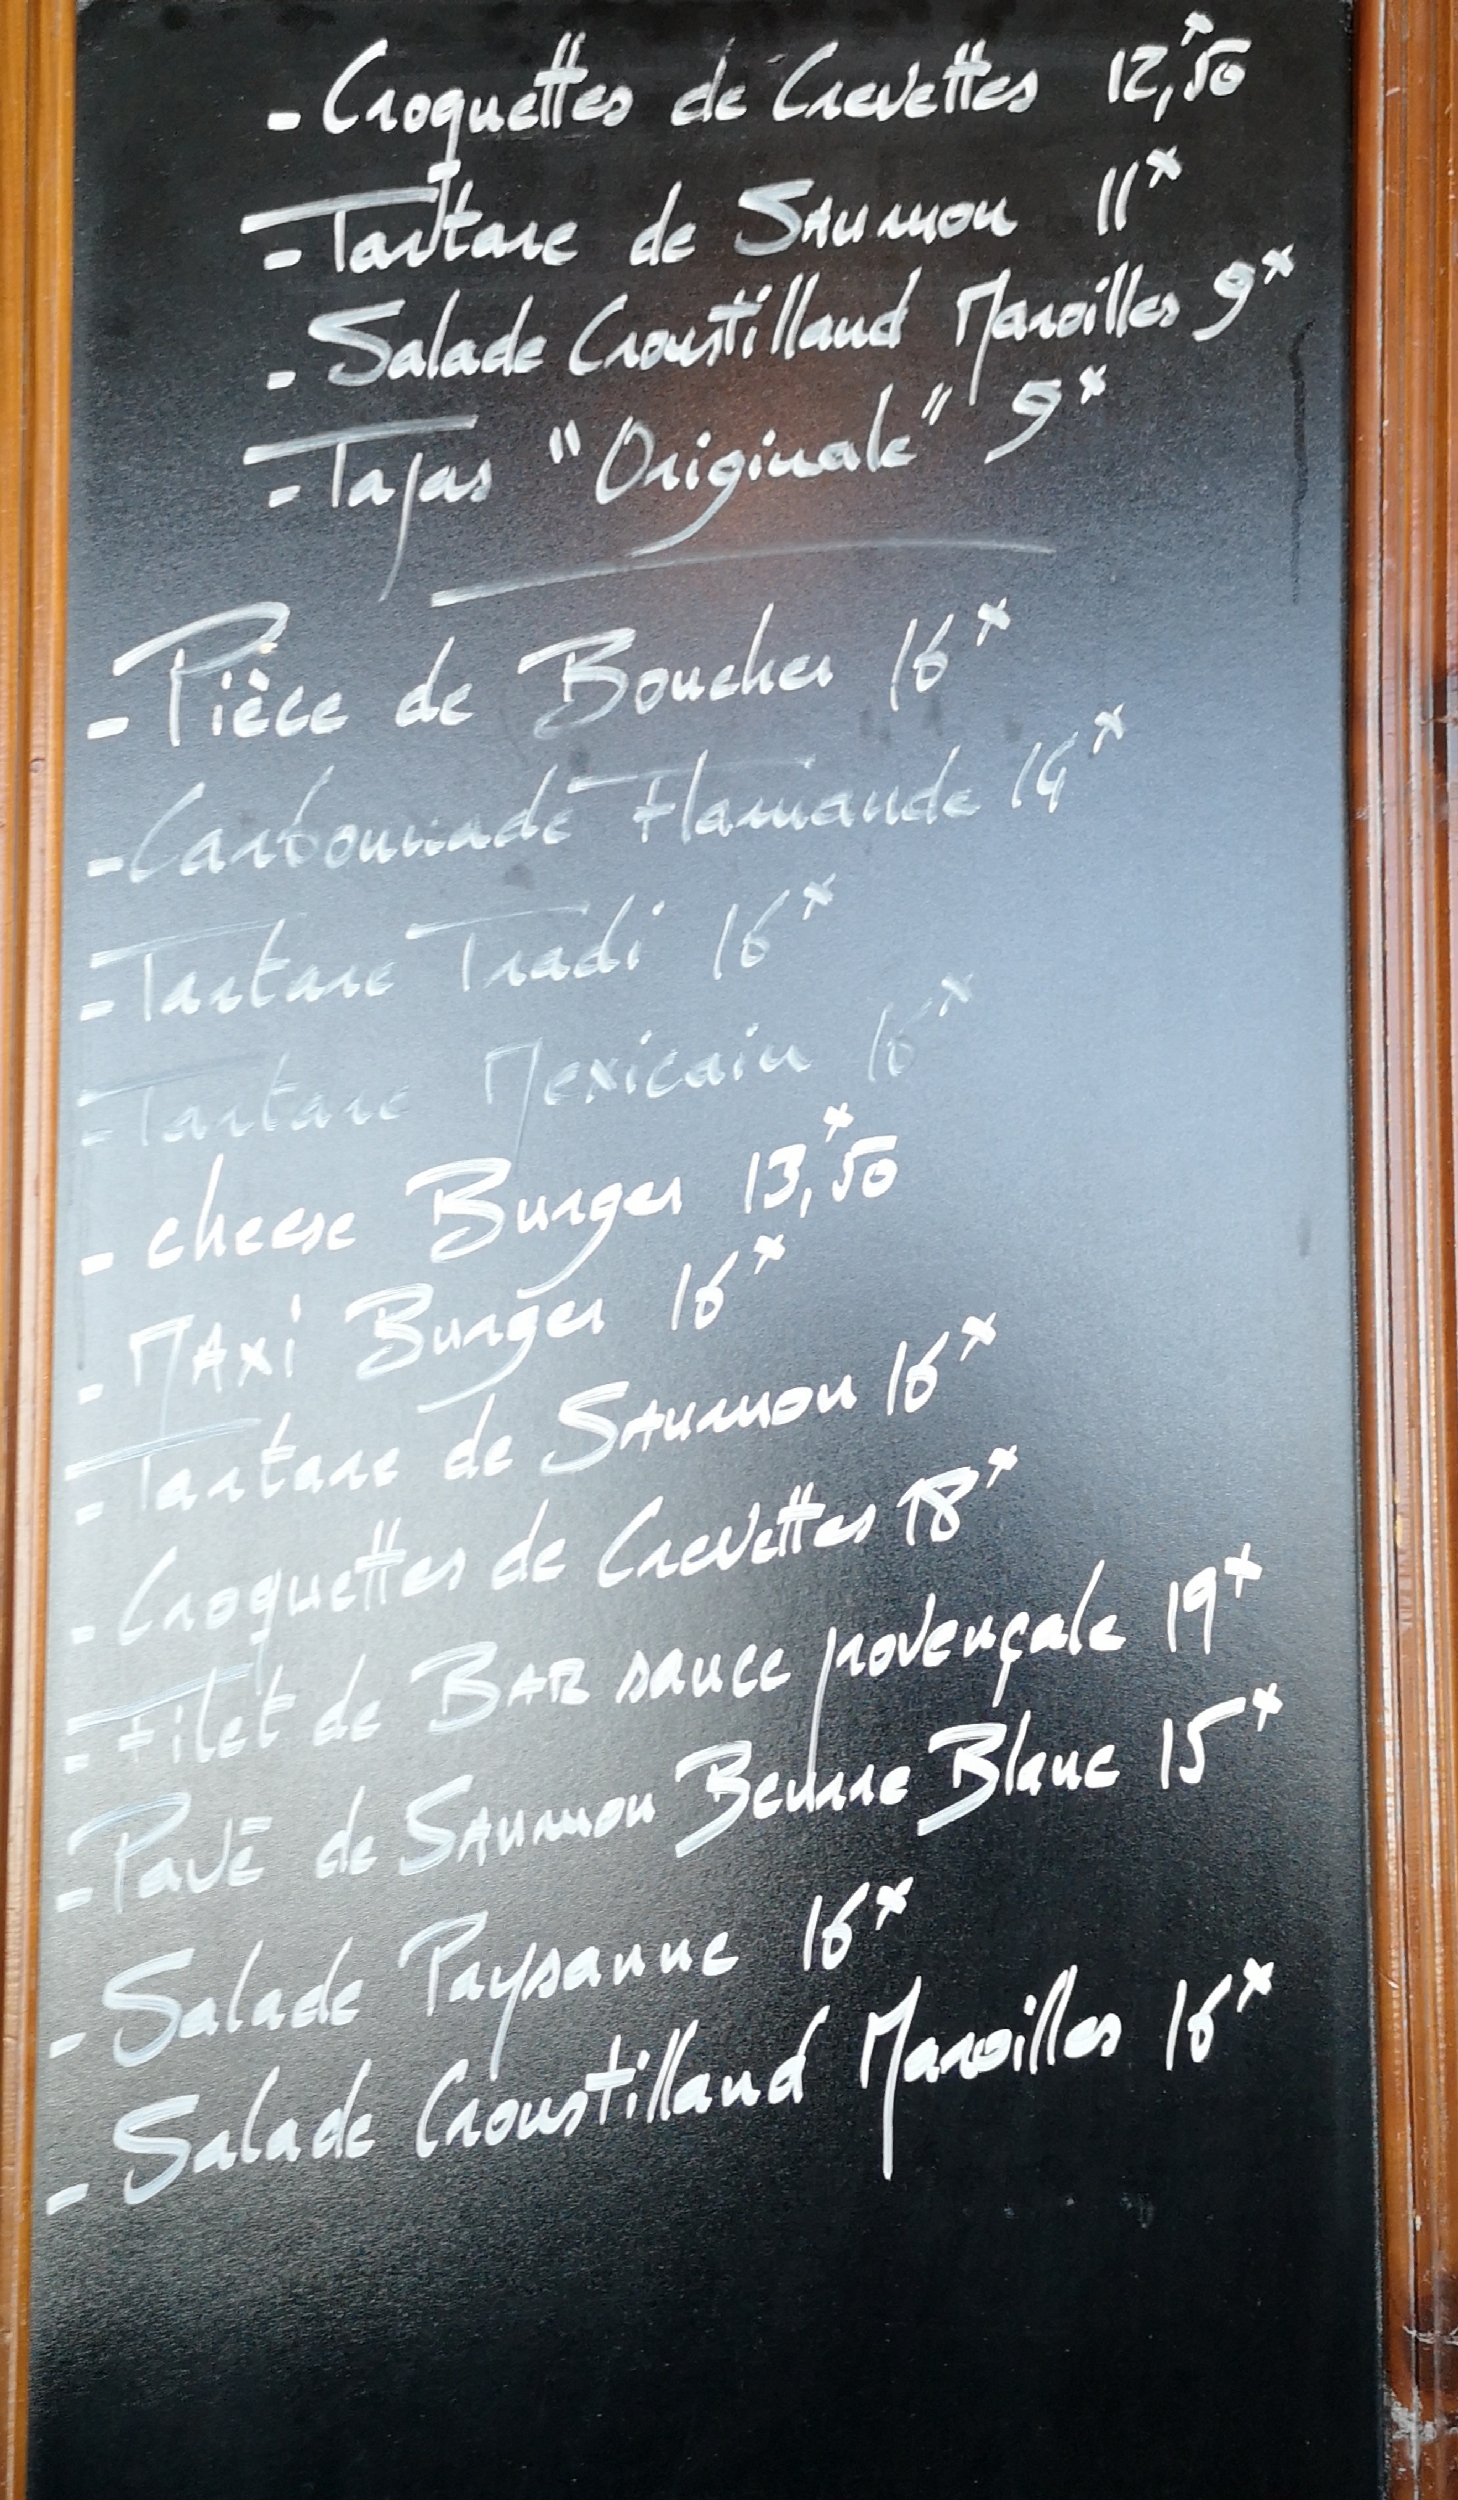 - Croquettes de Crevettes 12,50
- Tartare de Saumon 11
- Salade Croustilland Maroilles 9
- Tapas "Originale" 9
- Pièce de Boucher 16
- Carbonnade Flamande 14
- Tartare Tradi 16
- Tartare Mexicain 16
- cheese Burger 13,50
- MAxi Burger 16
- Tartare de SAumon 16
- Croquettes de Crevettes 18
- Filet de BAR sauce provençale 19
- Pavé de SAumon Beurre Blanc 15
- Salade Paysanne 16
- Salade Croustilland Maroilles 16